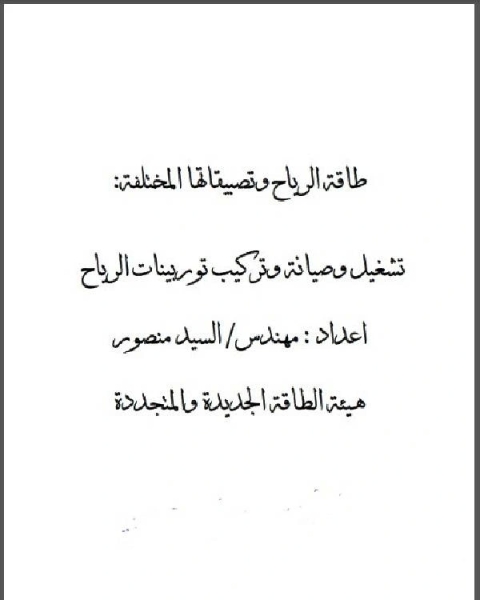 طاقة الرياح وتصيقاتها المختلفة:
تشغيل وصيانة وتركيب توربينات الرياح
اعداد : مهندس/ السيد منصور
هيئة الطاقة الجديدة والمتجددة